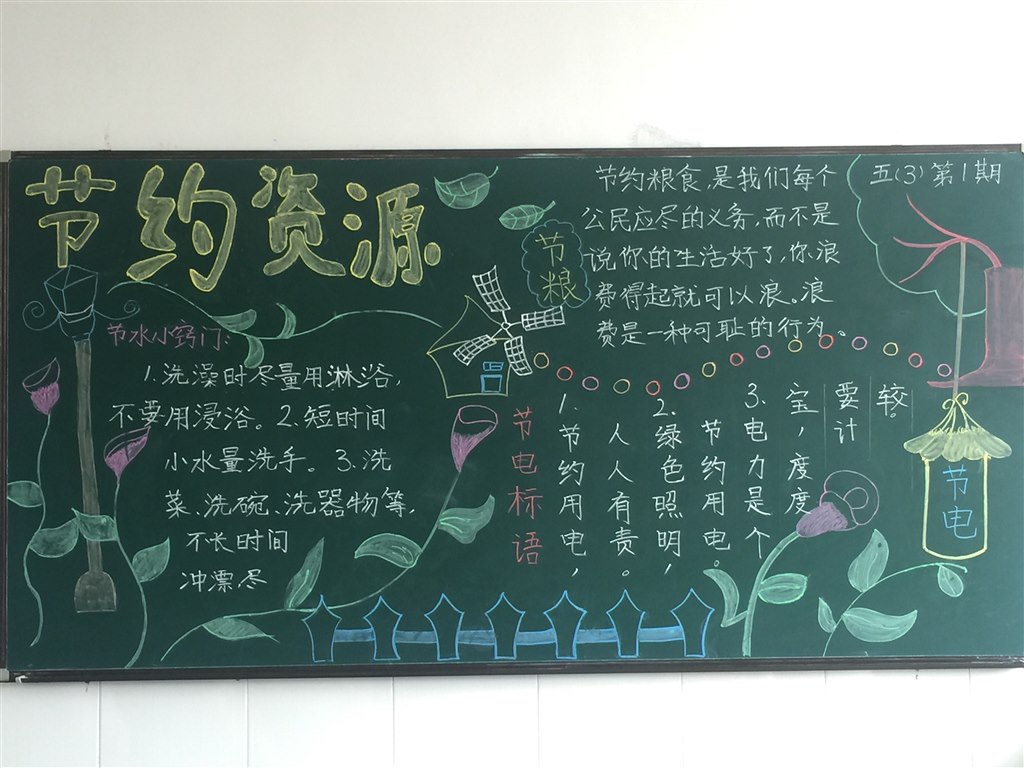 节约资源
五(3)第1期
节粮
节约粮食,是我们每个
公民应尽的义务,而不是
说你的生活好了,你浪
费得起就可以浪。浪
费是一种可耻的行为。
节水小窍门:
1.洗澡时尽量用淋浴,
不要用浸浴。2.短时间
小水量洗手。3.洗
菜、洗碗、洗器物等,
不长时间
冲漂,尽
节电标语
1.节约用电,
人人有责。
2.绿色照明,
节约用电。
3.电力是个
宝,度度
要计
较。
节电